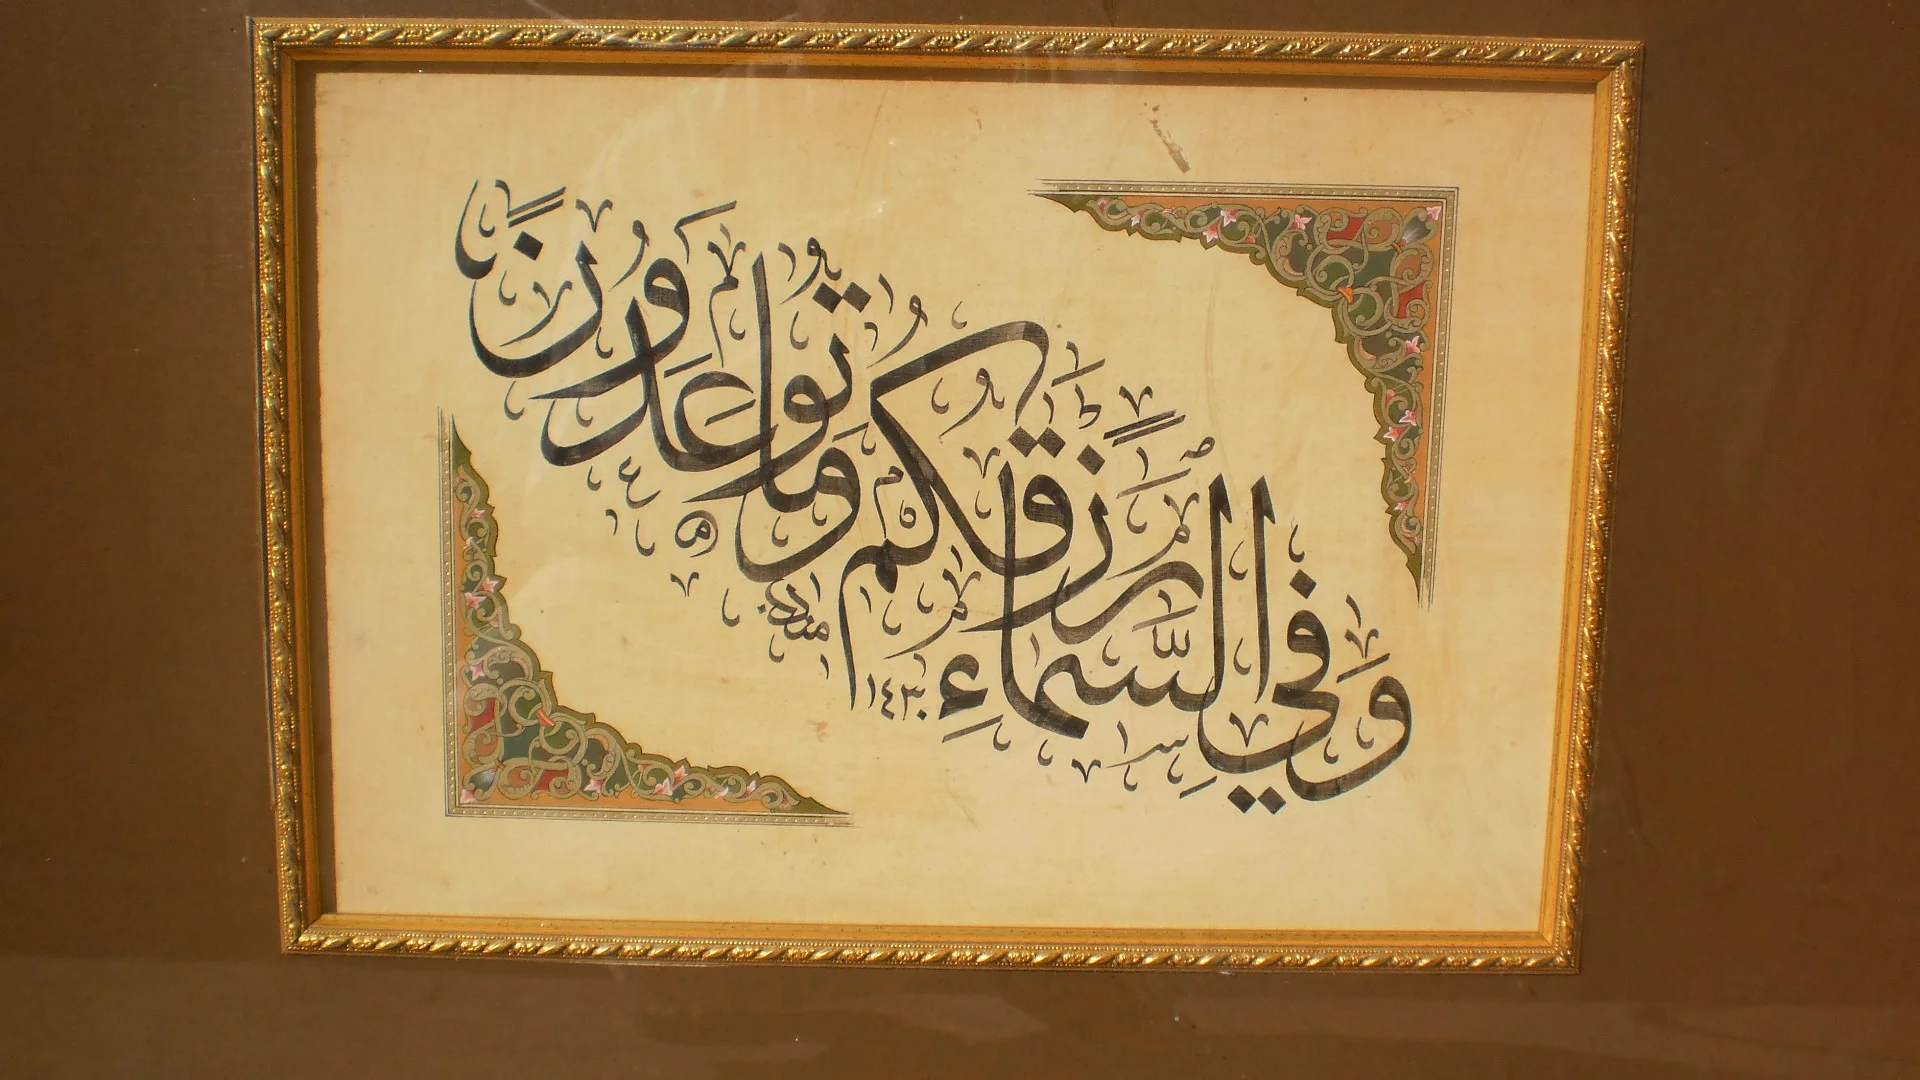 وَفِي السَّمَاءِ رِزْقُكُمْ وَمَا تُوعَدُونَ
١٤٣٠